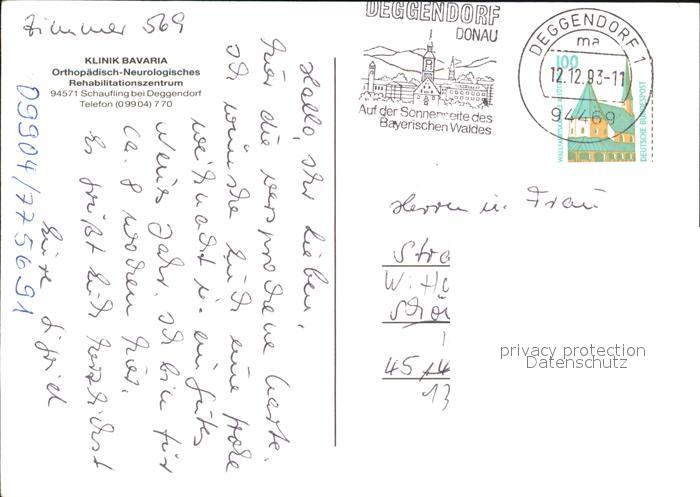 Zimmer 569
KLINIK BAVARIA
Orthopädisch-Neurologisches
Rehabilitationszentrum
94571 Schaufling bei Deggendorf
Telefon (09904) 770
09904/775691
Hallo, Ihr Lieben,
hier die versprochene Karte.
Ich wünsche Euch eine frohe
Weihnacht u. ein gutes
Neues Jahr. Ich bin für
ca. 8 Wochen hier.
Es grüßt Euch herzlichst
Eure
DEGGENDORF
DONAU
Auf der Sonnenseite des
Bayerischen Waldes
DEGGENDORF 1
ma
12.12.93-11
94469
100
DEUTSCHE BUNDESPOST
Herrn u. Frau
Stra
W.-Ho
45
13
privacy protection
Datenschutz